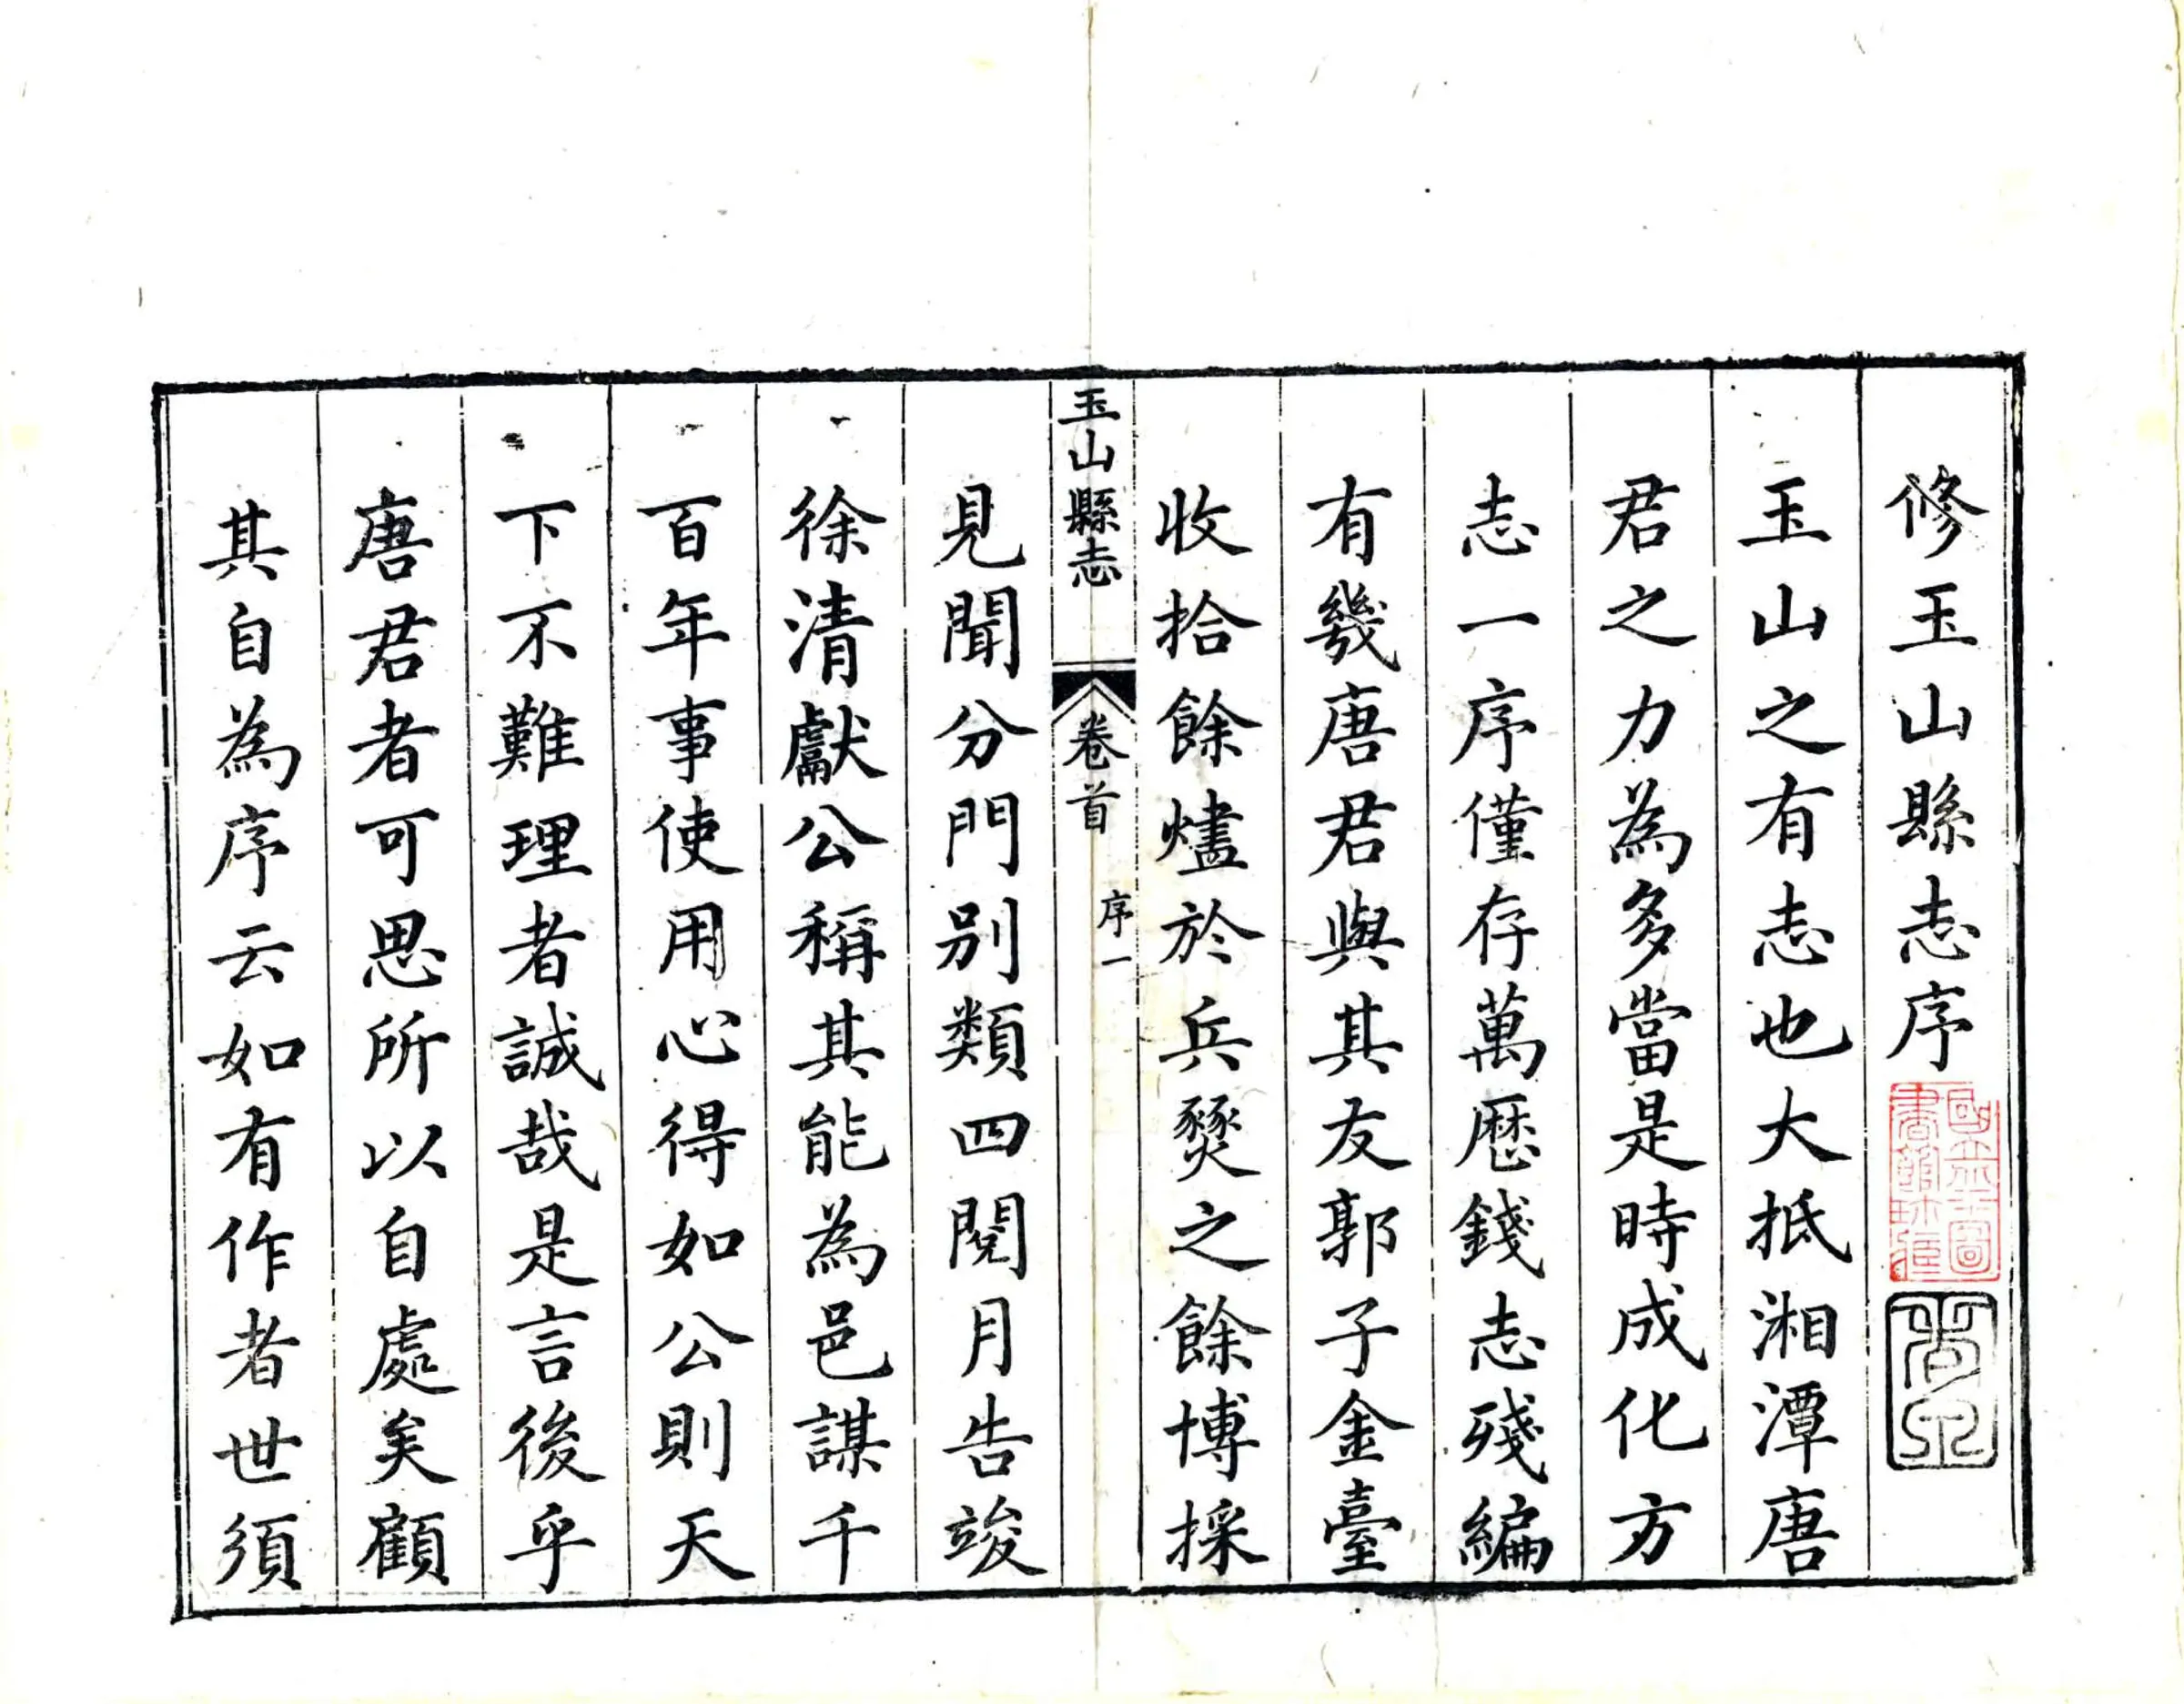 修玉山縣志序
國立圖書館珍藏
玉山之有志也大抵湘潭唐
君之力為多當是時成化方
志一序僅存萬歷錢志殘編
有幾唐君與其友郭子金臺
收拾餘燼於兵燹之餘博採
玉山縣志 卷首 序一
見聞分門別類四閱月告竣
徐清獻公稱其能為邑謀千
百年事使用心得如公則天
下不難理者誠哉是言後乎
唐君者可思所以自處矣顧
其自為序云如有作者世須